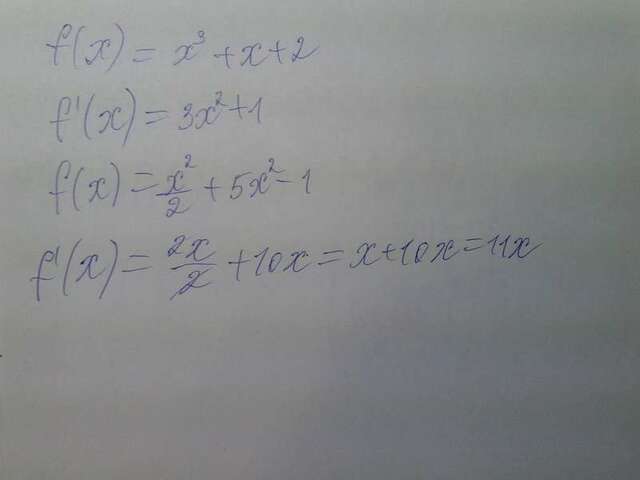 f(x) = x³ + x + 2
f'(x) = 3x² + 1
f(x) = x²/2 + 5x² - 1
f'(x) = 2x/2 + 10x = x + 10x = 11x